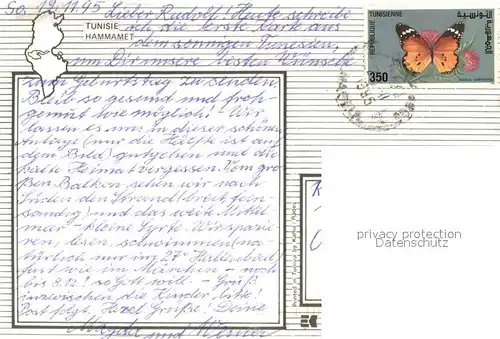 So, 19.11.95 Lieber Rudolf! Heute schreib
ich die erste Karte aus
TUNISIE
HAMMAMET
dem sonnigen Tunesien,
um Dir unsere besten Wünsche
zum Geburtstag zu senden.
Bleib so gesund und froh-
gemut wie möglich! Wir
lassen es uns in dieser schönen
Anlage (nur die Hälfte ist auf
dem Bild) gutgehen und die
kalte Heimat vergessen. Vom gro-
ßen Balkon sehen wir nach
Süden den Strand (breit, fein-
sandig) und das weite Mittel
meer - kleine Syrte. Wir spazie-
ren, lesen, schwimmen (na-
türlich nur im 27° Hallenbad)
fast wie im Märchen - noch
bis 8.12.! so Gott will. - Grüß
inzwischen die Kinder, bitte!
Post folgt. Herzl. Grüße! Deine
Magda und Werner
REPUBLIQUE
TUNISIENNE
350
privacy protection
Datenschutz